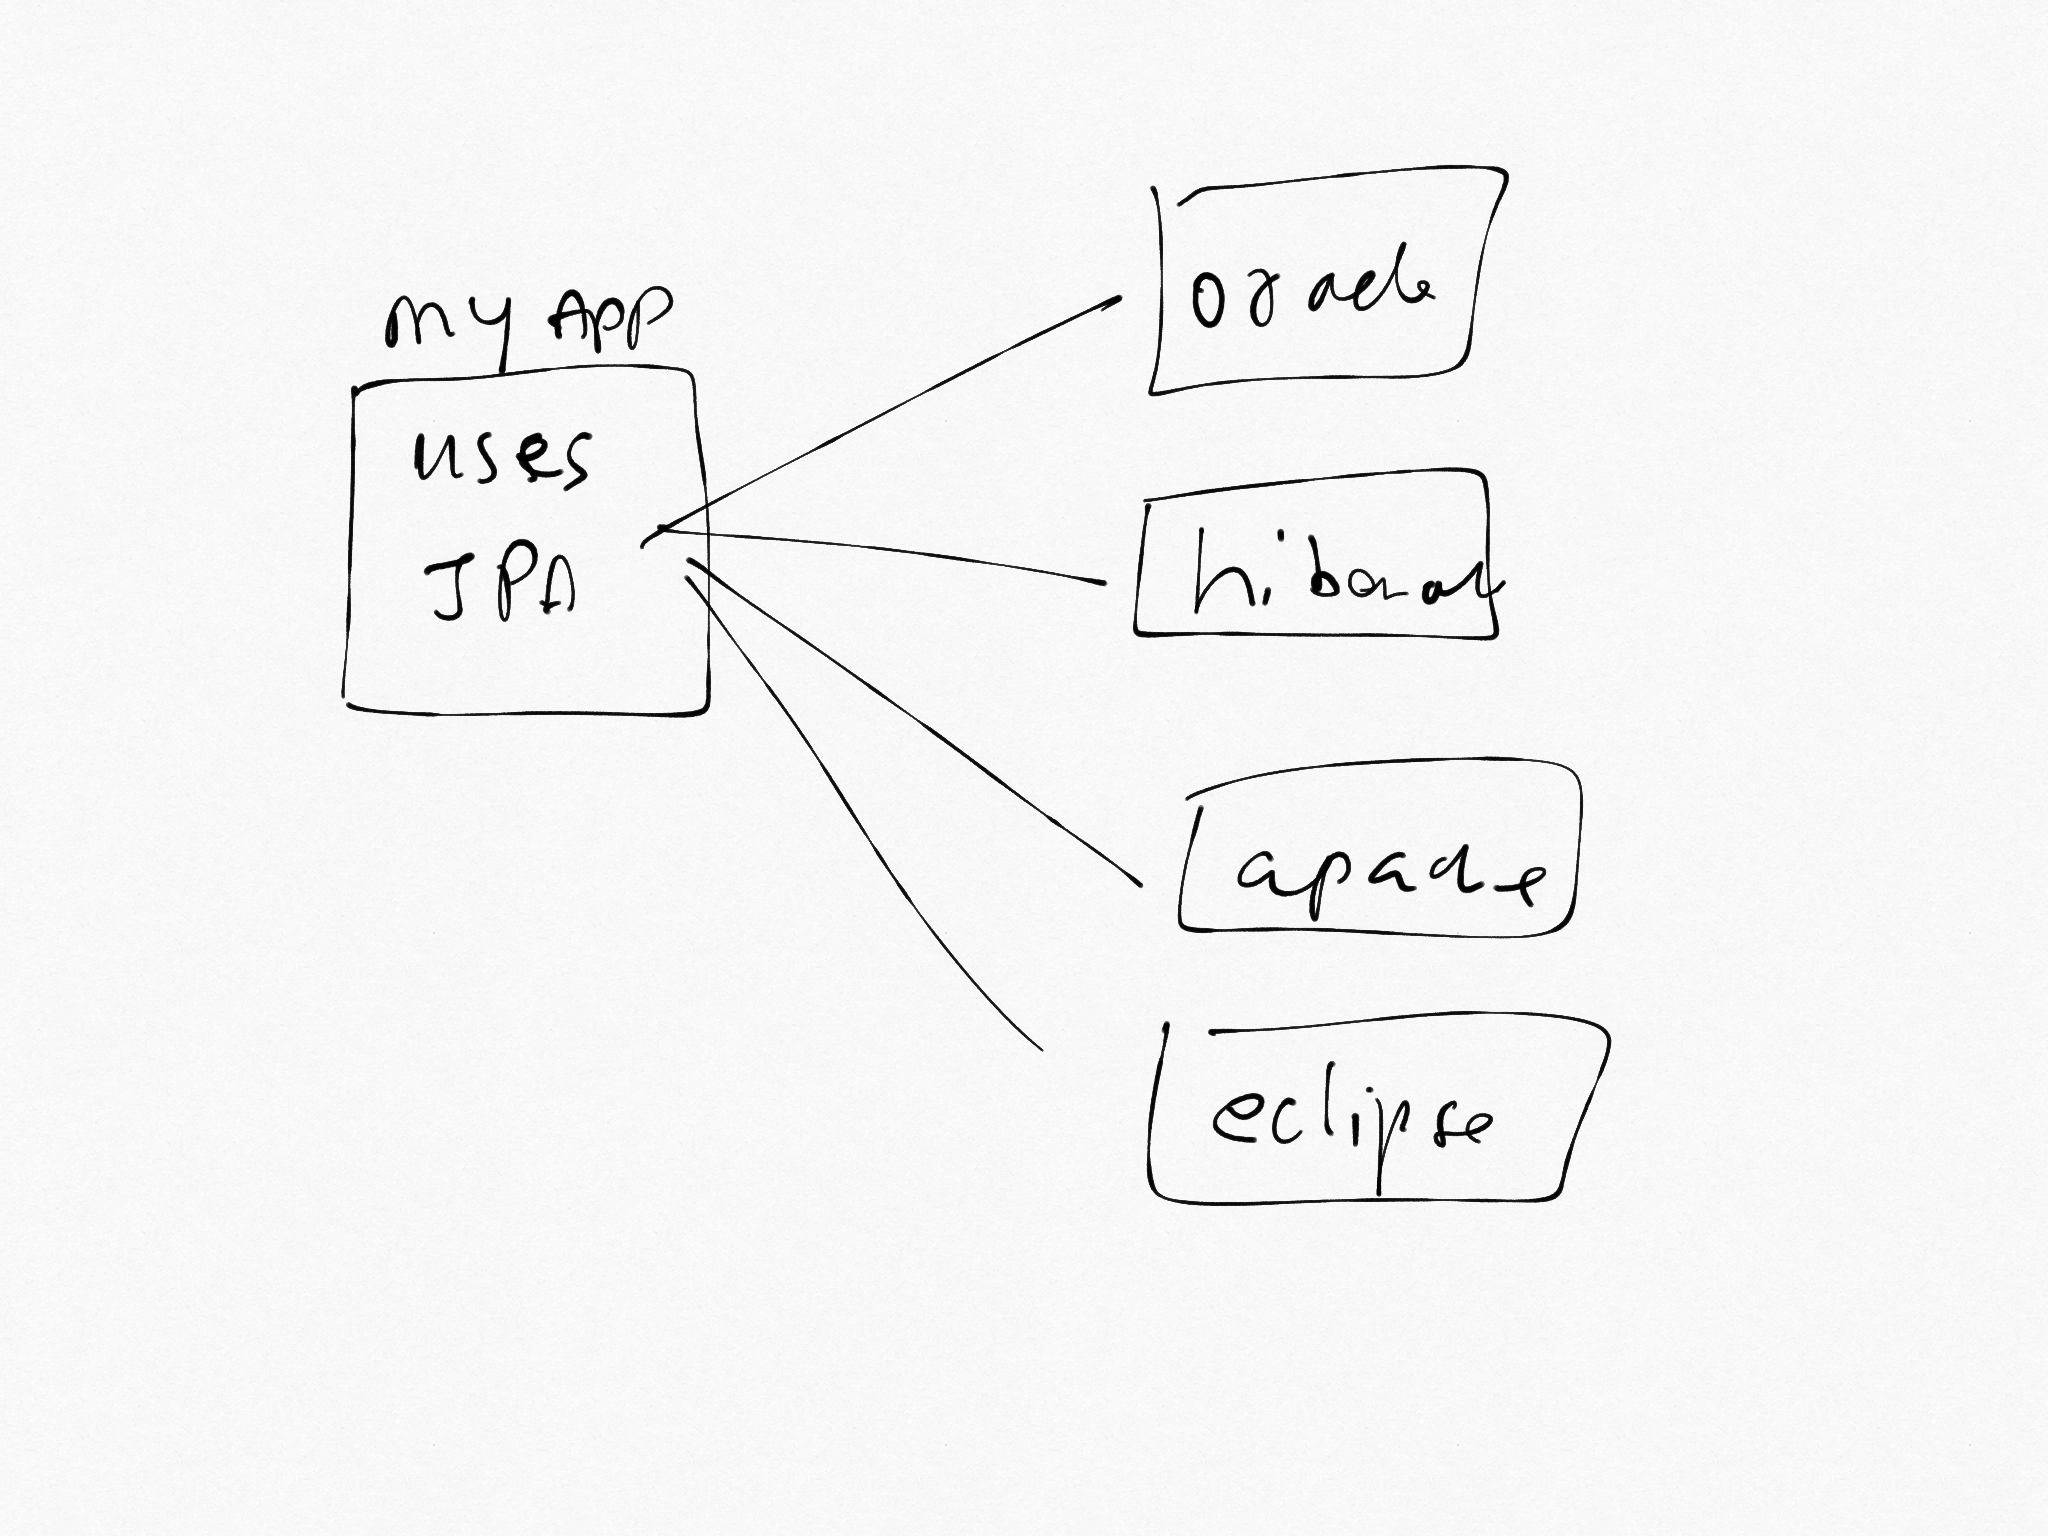 my App
uses
JPA
oracle
hibernate
apache
eclipse